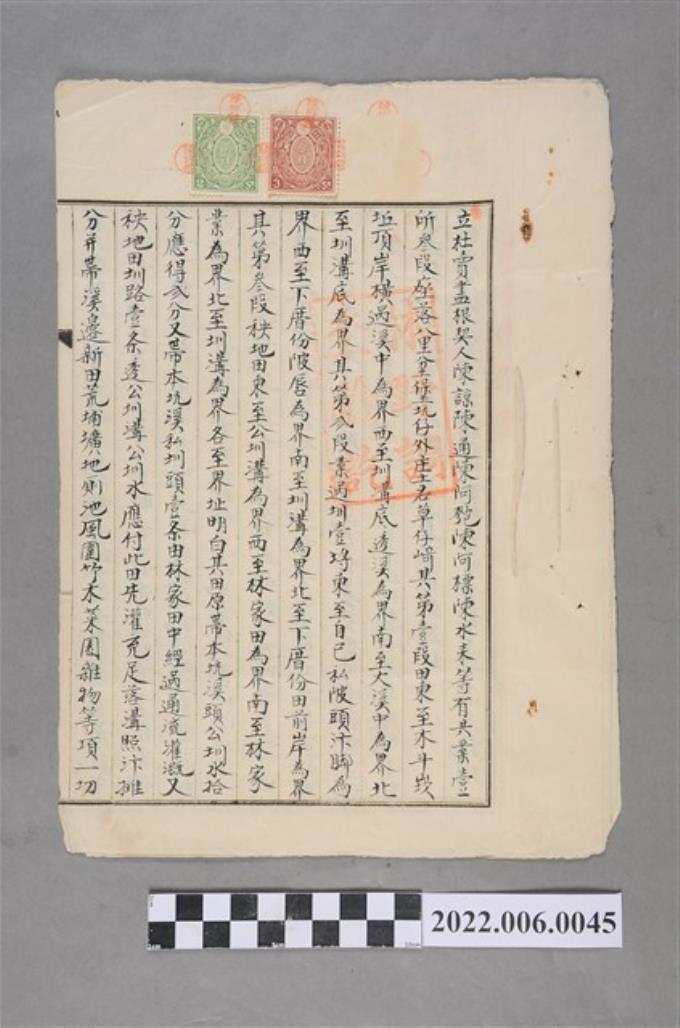 立杜賣盡根契人陳諒陳通陳阿匏陳阿標陳水來等有共業壹
所叁段座落八里坌保坑仔外庄土名草仔崎其第壹段田東至木斗崁
坵頂岸橫過溪中為界西至圳溝底透溪為界南至大溪中為界北
至圳溝底為界其第弐段業過圳壹埒東至自己私陂頭汴脚為
界西至下厝份陂唇為界南至圳溝為界北至下厝份田前岸為界
其第叁段秧地田東至公圳溝為界西至林家田為界南至林家
業為界北至圳溝為界各至界址明白其田原帶本坑溪頭公圳水拾
分應得弍分又帶本坑溪私圳頭壹条由林家田中經過通流灌溉又
秧地田圳路壹条透公圳溝公圳水應付此田先灌充足落溝照汴推
分并帶溪邊新田荒埔壙地則池風圍竹木菜園雜物等項一切
2022.006.0045